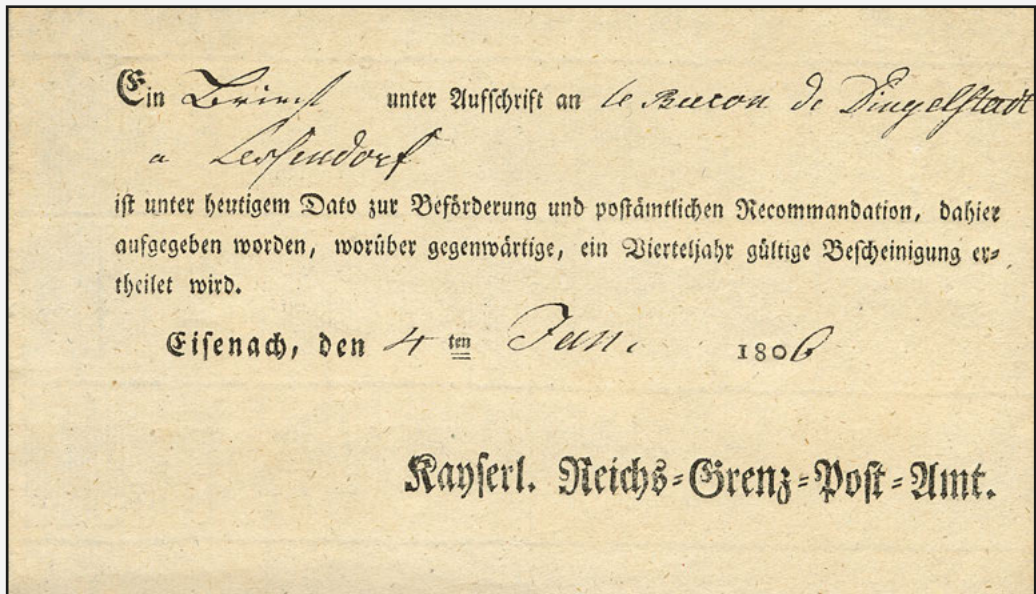 Ein Brief unter Aufschrift an le Baron de Dingelstadt
a
ist unter heutigem Dato zur Beförderung und postämtlichen Recommandation, dahier
aufgegeben worden, worüber gegenwärtige, ein Vierteljahr gültige Bescheinigung er-
theilet wird.
Eisenach, den 4 ten Jan. 1806
Kayserl. Reichs-Grenz-Post-Amt.